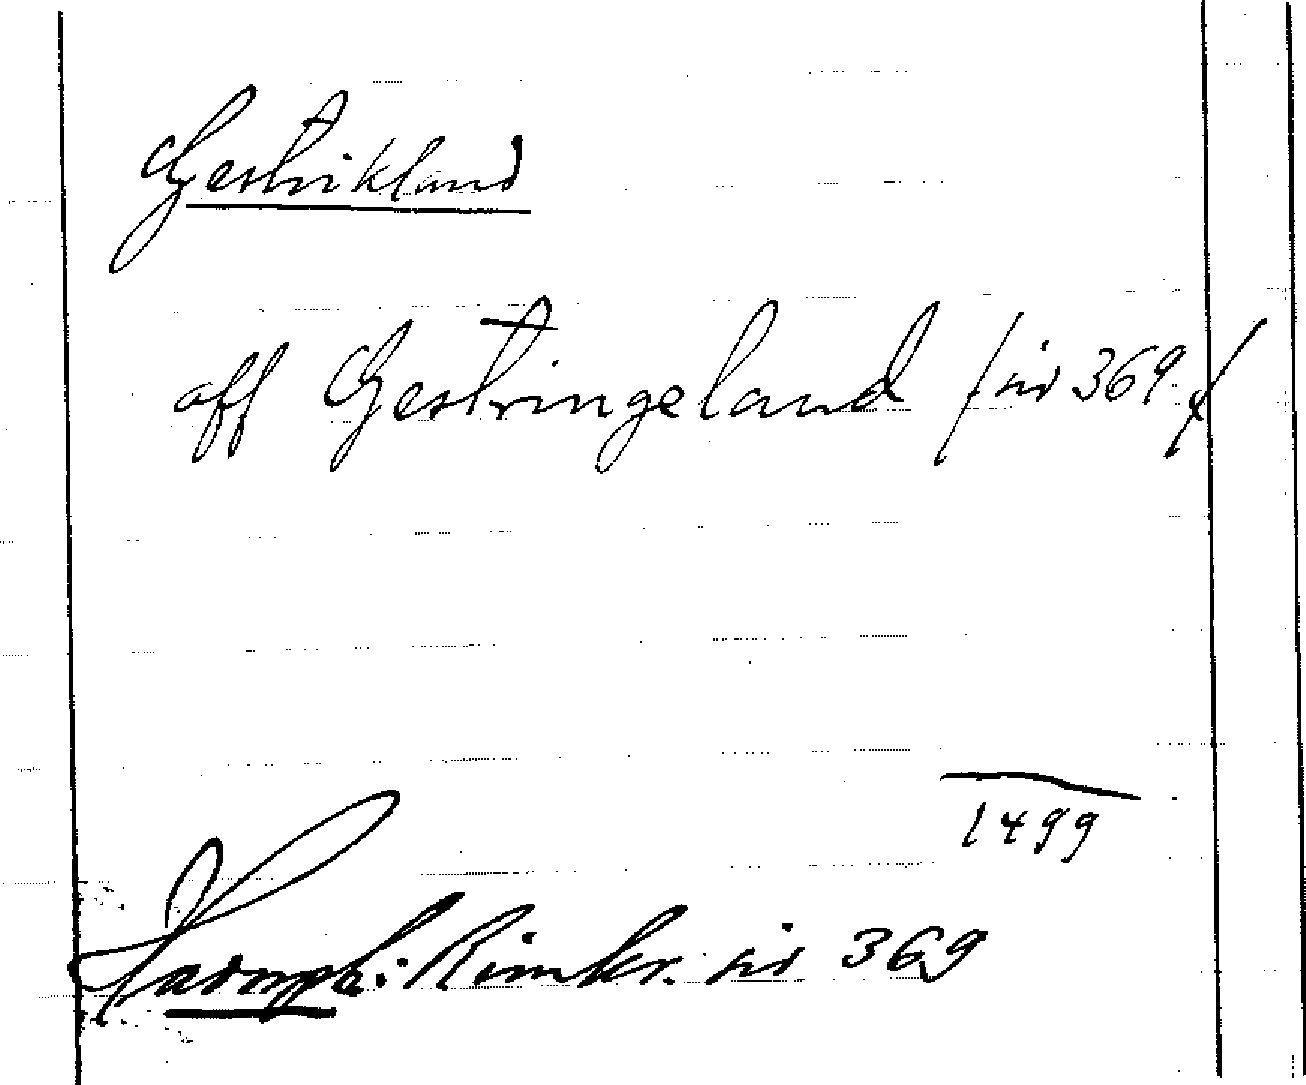 Gestrikland
aff Gestringeland /sid 369./
1499
Rimkr. sid 369